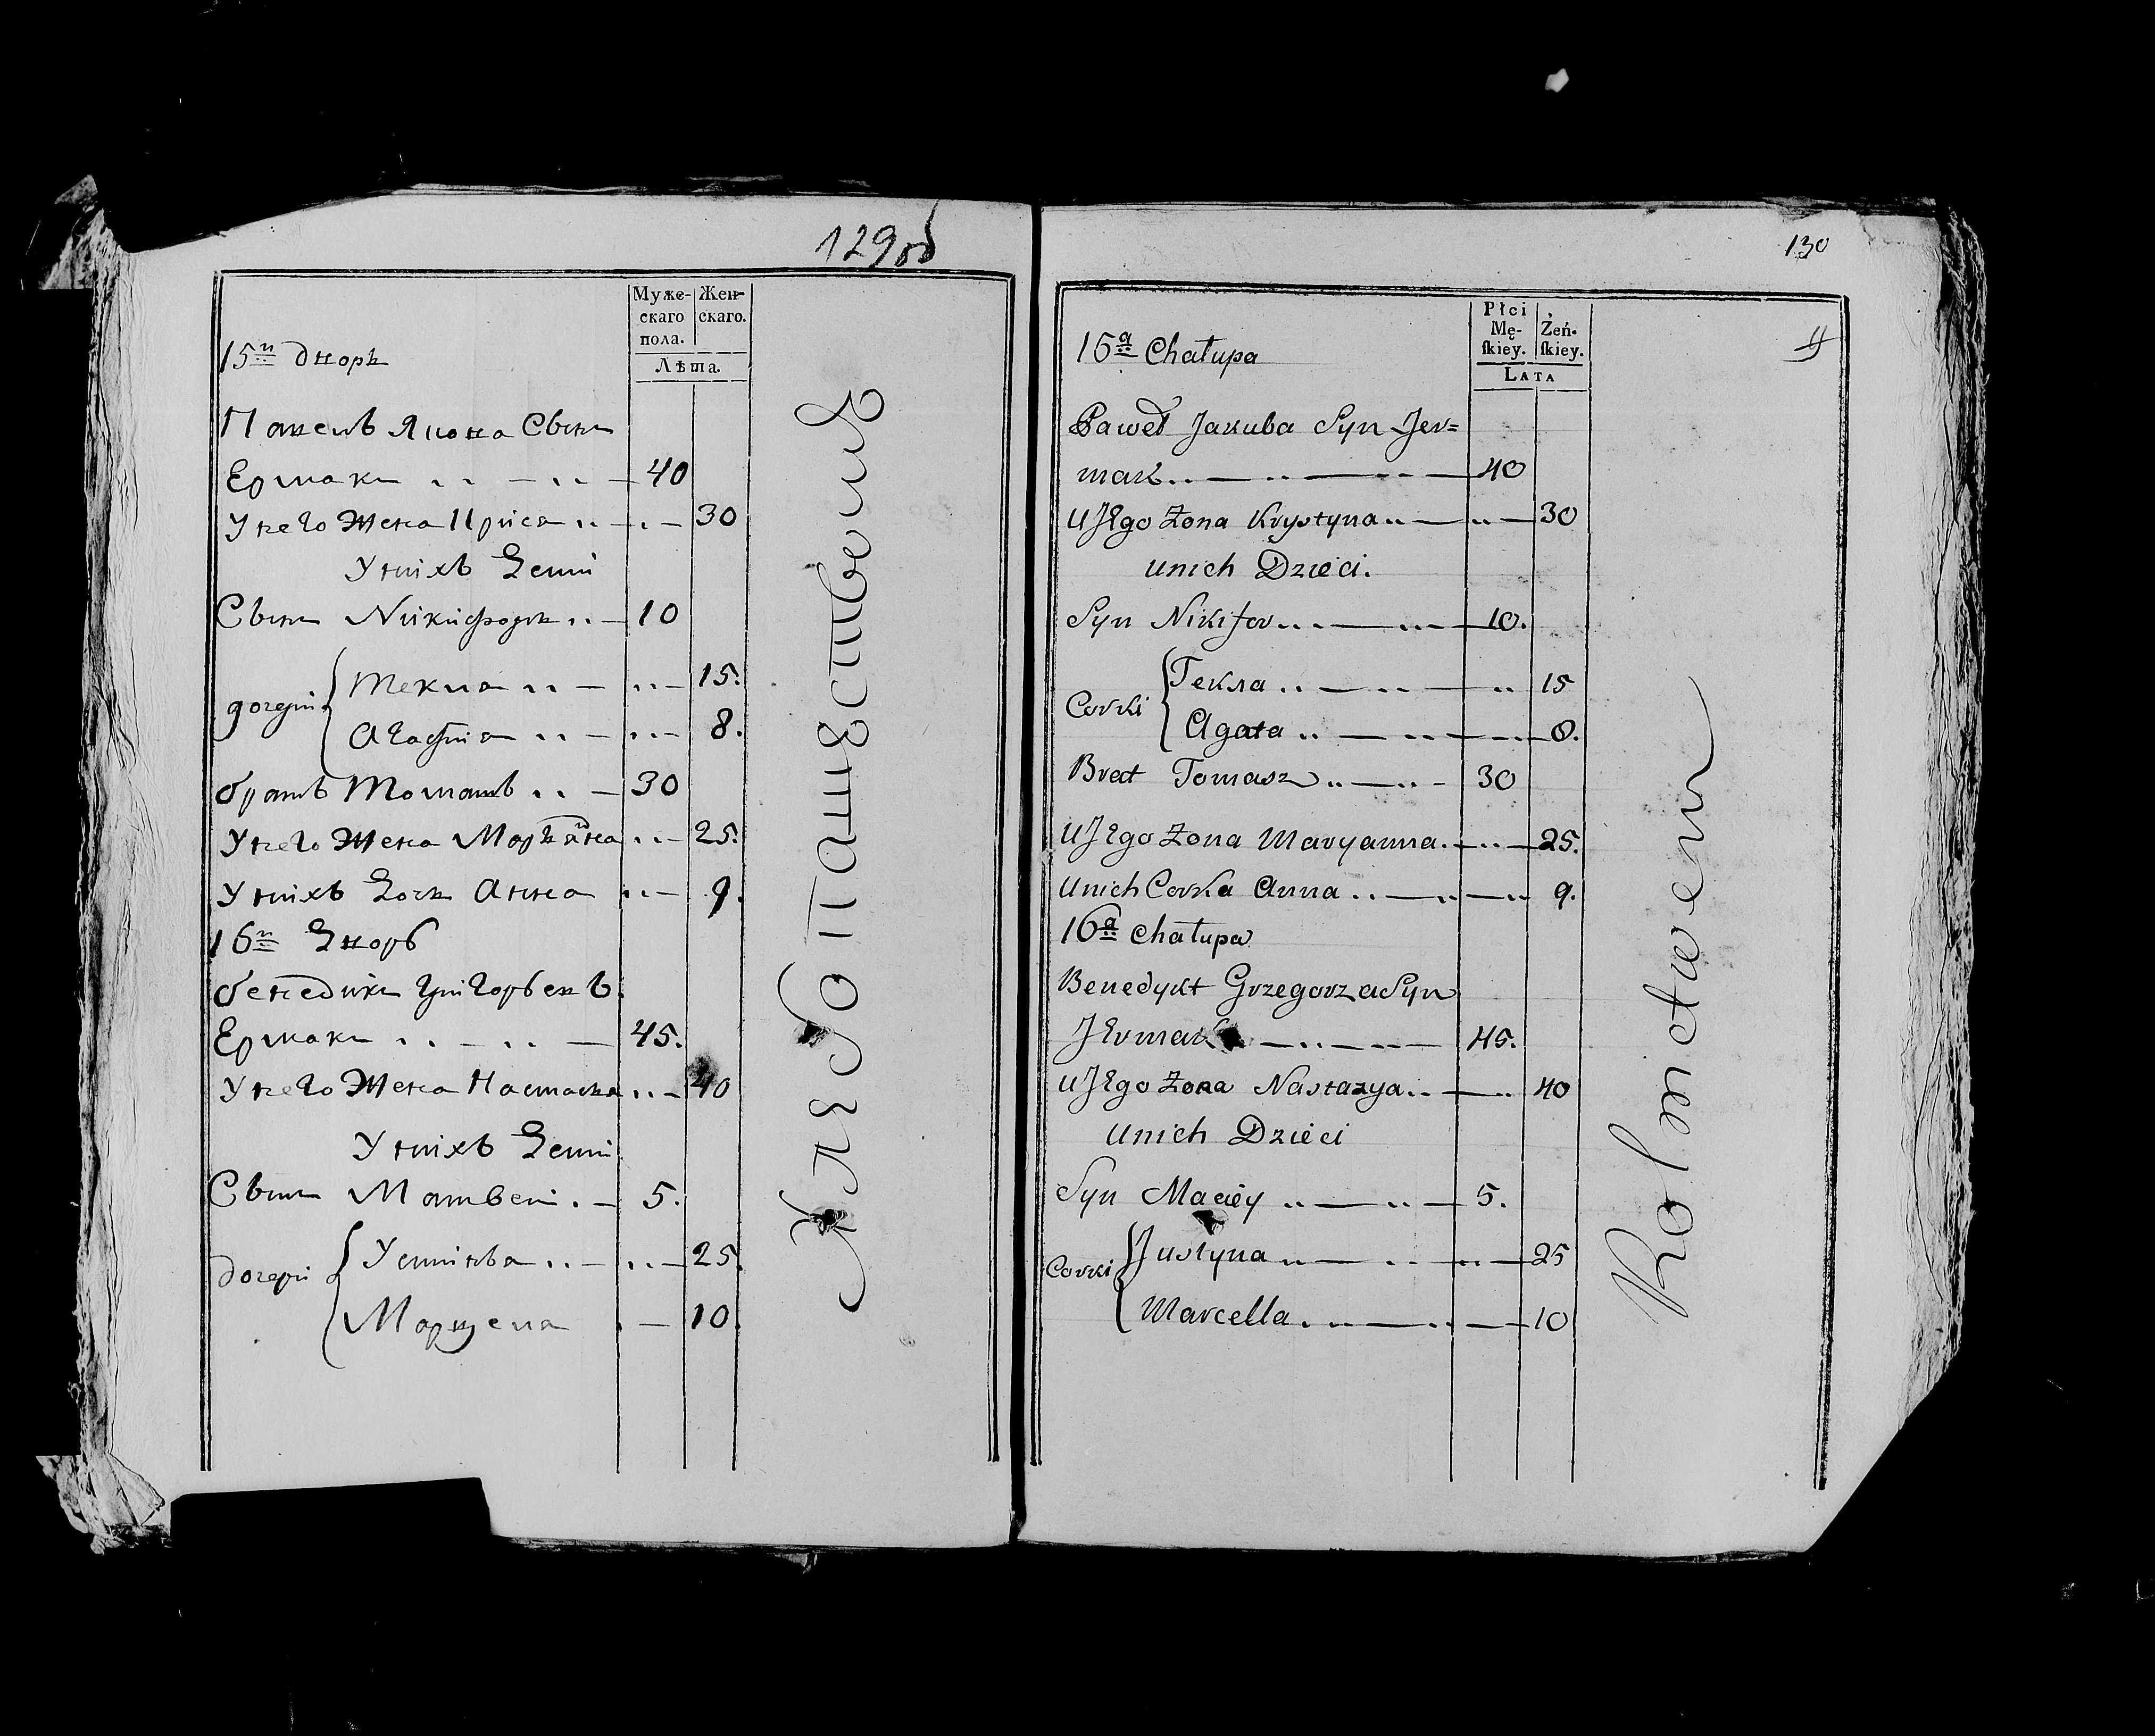 129об
Муже-
скаго
пола.
Жен-
скаго.
Лѣта.
15й дворъ
Павелъ Якова Сынъ
Ермакъ .. — .. — 40
У него жена Приса .. — .. — 30
У нихъ Дети
Сынъ Никифоръ .. — 10
дочери { Текля .. — .. — 15.
Агафия .. — .. — 8.
братъ Томашъ .. — 30
У него жена Марьяна .. — 25.
У нихъ Дочь Анна .. — 9.
16й Дворъ
бенедикъ Григорьевъ
Ермакъ .. — .. — 45.
У него жена Настасья .. — 40
У нихъ Дети
Сынъ Матвей . — 5.
дочери { Устинья .. — .. — 25.
Марцела . — 10.
Хлебопашествомъ
130
Płci
Mę-
skiey.
Żeń-
skiey.
LATA
15a Chałupa
Paweł Jakuba Syn Jer=
mak .. — .. — .. — 40
U Jego Żona Krystyna .. — .. — 30
u nich Dzieci.
Syn Nikifor ... — ... — 10.
Corki { Tekla .. — .. — .. 15
Agata .. — .. — .. — 8.
Brat Tomasz .. — .. - 30
U Jego Żona Maryanna . — .. — 25.
U nich Corka Anna .. — .. — .. 9.
16a Chałupa
Benedykt Grzegorza Syn
Jermak — .. — .. — 45.
U Jego Żona Nastazya .. — .. 40
U nich Dzieci
Syn Maciéy .. — .. — 5.
Corki { Justyna .. — .. — .. — 25
Marcella . .. — .. — 10
Rolnictwem